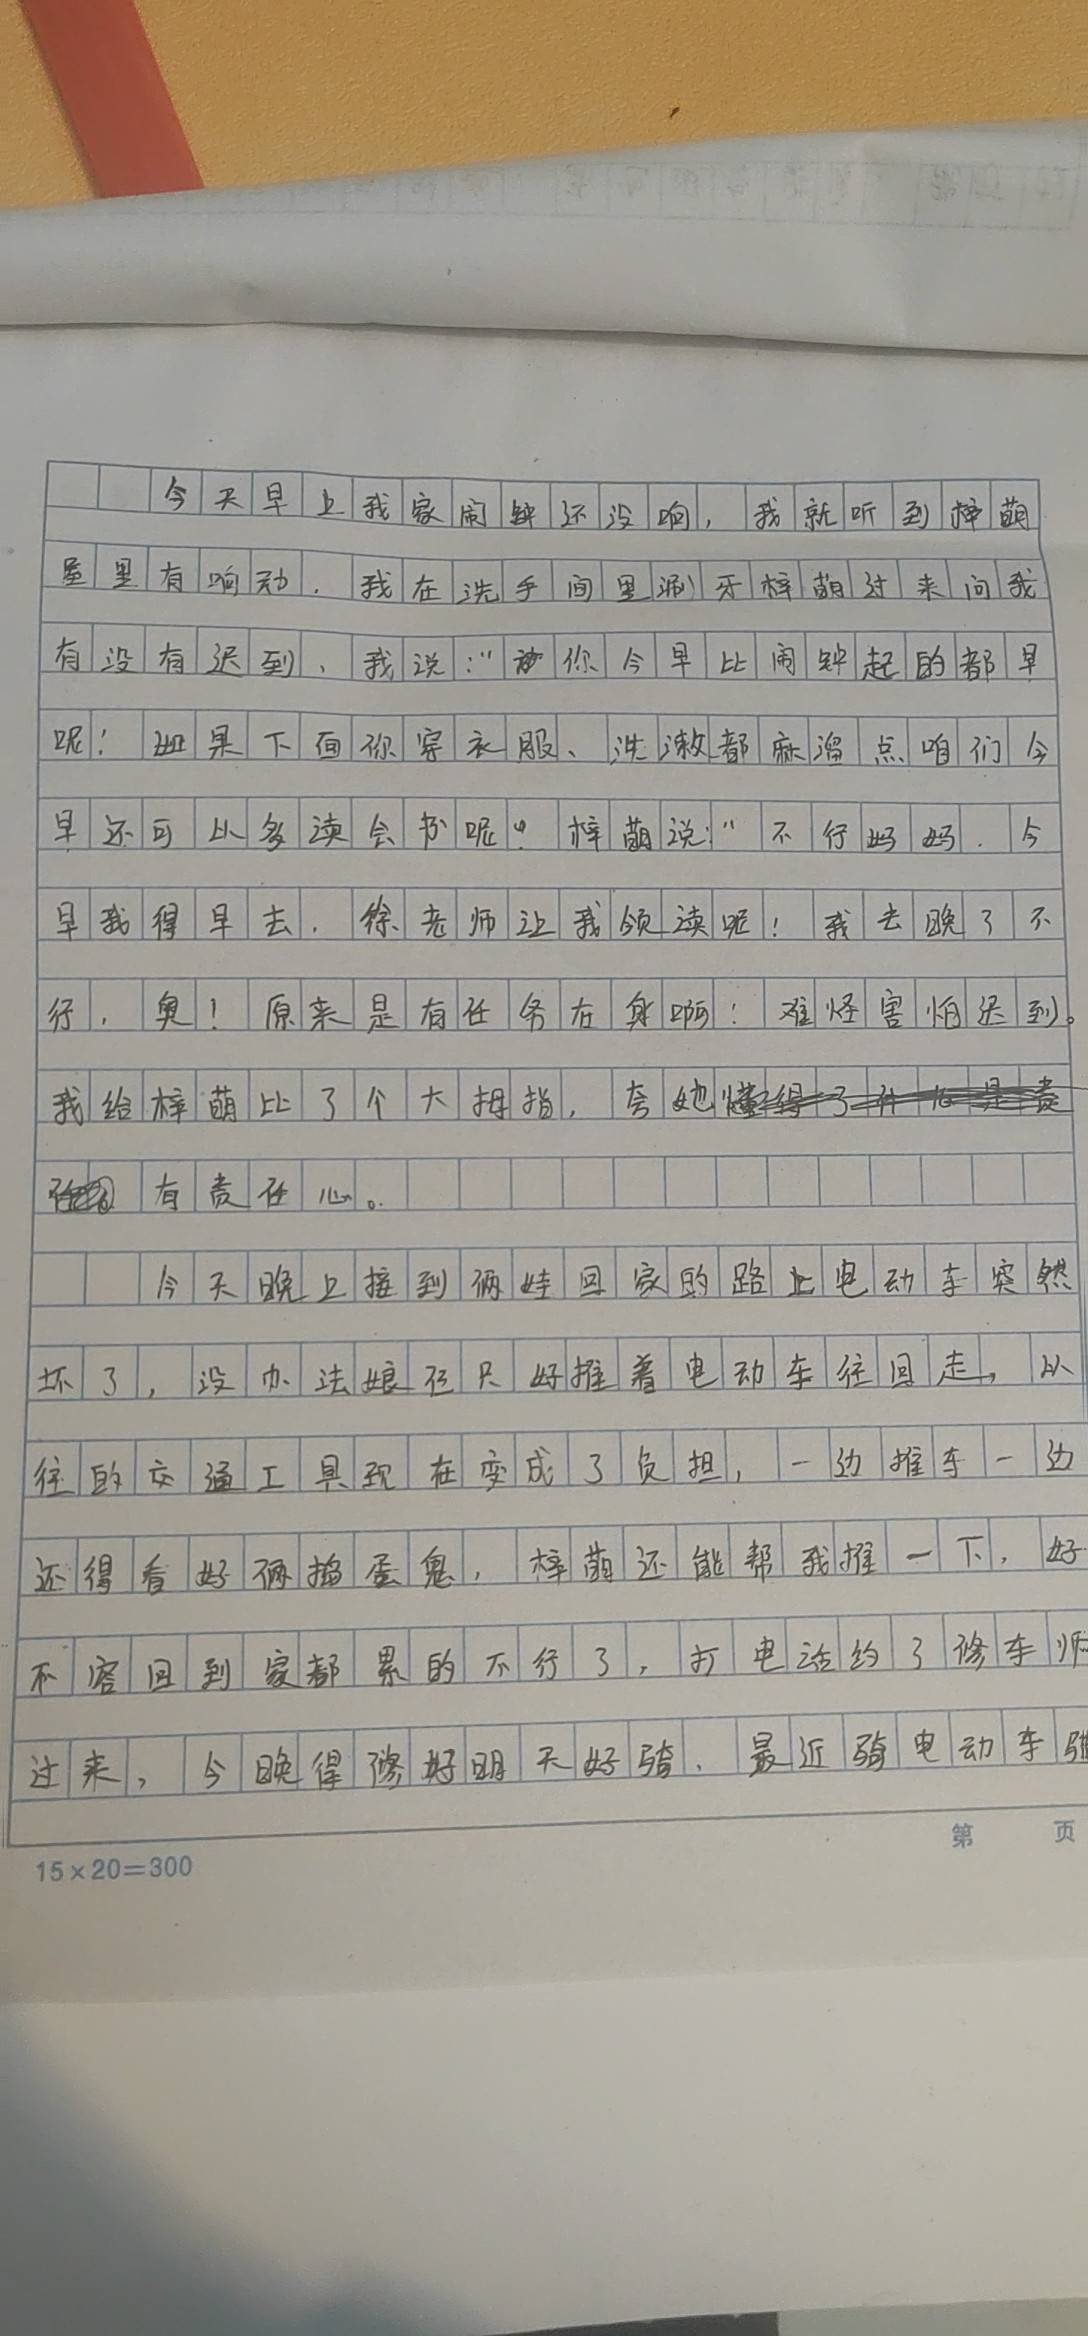 今天早上我家闹钟还没响，我就听到梓萌
屋里有响动．我在洗手间里涮牙梓萌过来问我
有没有迟到、我说："你今早比闹钟起的都早
呢！如果下面你穿衣服、洗漱都麻溜点咱们今
早还可以多读会书呢" 梓萌说:"不行妈妈．今
早我得早去．徐老师让我领读呢！我去晚了不
行．奥！原来是有任务在身啊！难怪害怕迟到。
我给梓萌比了个大拇指，夸她懂得了什么是责
任 有责任心。
今天晚上接到俩娃回家的路上电动车突然
坏了，没办法娘仨只好推着电动车往回走，以
往的交通工具现在变成了负担，一边推车一边
还得看好俩捣蛋鬼，梓萌还能帮我推一下，好
不容回到家都累的不行了，打电话约了修车师
过来，今晚得修好明天好骑．最近骑电动车
15×20=300
第 页